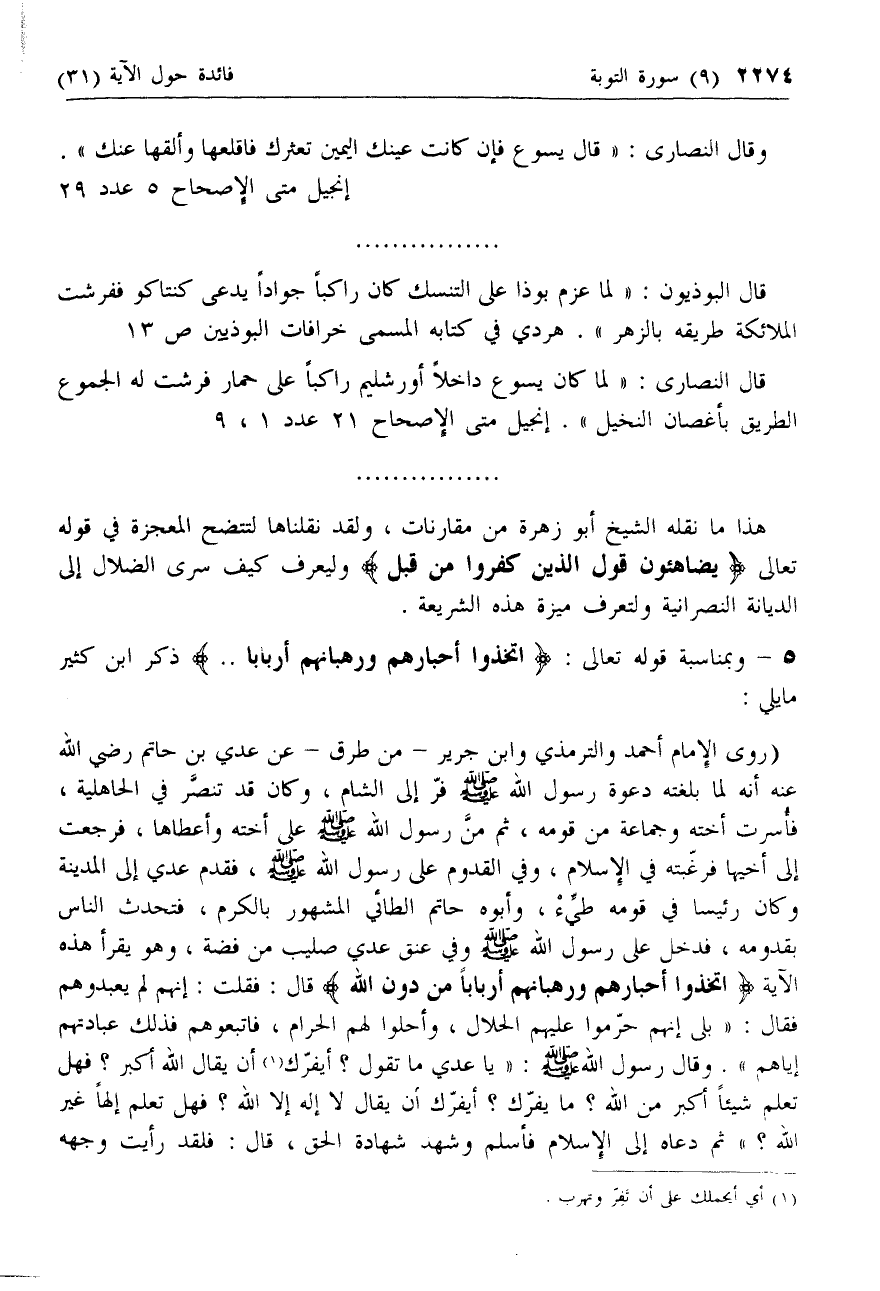 ٢٢٧٤ (٩) سورة التوبة فائدة حول الآية (٣١)
وقال النصارى : « قال يسوع فإن كانت عينك اليمين تعثرك فاقلعها وألقها عنك » .
إنجيل متى الإصحاح ٥ عدد ٢٩
................
قال البوذيون : « لما عزم بوذا على التنسك كان راكباً جواداً يدعى كنتاكو ففرشت
الملائكة طريقه بالزهر » . هردي في كتابه المسمى خرافات البوذيين ص ١٣
قال النصارى : « لما كان يسوع داخلاً أورشليم راكباً على حمار فرشت له الجموع
الطريق بأغصان النخيل » . إنجيل متى الإصحاح ٢١ عدد ١ ، ٩
................
هذا ما نقله الشيخ أبو زهرة من مقارنات ، ولقد نقلناها لتتضح المعجزة في قوله
تعالى ﴿ يضاهئون قول الذين كفروا من قبل ﴾ وليعرف كيف سرى الضلال إلى
الديانة النصرانية ولتعرف ميزة هذه الشريعة .
٥ – وبمناسبة قوله تعالى : ﴿ اتخذوا أحبارهم ورهبانهم أربابا .. ﴾ ذكر ابن كثير
مايلي :
(روى الإمام أحمد والترمذي وابن جرير – من طرق – عن عدي بن حاتم رضي الله
عنه أنه لما بلغته دعوة رسول الله ﷺ فرّ إلى الشام ، وكان قد تنصَّر في الجاهلية ،
فأُسرت أخته وجماعة من قومه ، ثم منَّ رسول الله ﷺ على أخته وأعطاها ، فرجعت
إلى أخيها فرغّبته في الإسلام ، وفي القدوم على رسول الله ﷺ ، فقدم عدي إلى المدينة
وكان رئيسا في قومه طيِّءْ ، وأبوه حاتم الطائي المشهور بالكرم ، فتحدث الناس
بقدومه ، فدخل على رسول الله ﷺ وفي عنق عدي صليب من فضة ، وهو يقرأ هذه
الآية ﴿ اتخذوا أحبارهم ورهبانهم أرباباً من دون الله ﴾ قال : فقلت : إنهم لم يعبدوهم
فقال : « بلى إنهم حرّموا عليهم الحلال ، وأحلوا لهم الحرام ، فاتبعوهم فذلك عبادتهم
إياهم » . وقال رسول الله ﷺ : « يا عدي ما تقول ؟ أيفرّك(١) أن يقال الله أكبر ؟ فهل
تعلم شيئاً أكبر من الله ؟ ما يفرّك ؟ أيفرّك أن يقال لا إله إلا الله ؟ فهل تعلم إلهاً غير
الله ؟ » ثم دعاه إلى الإسلام فأسلم وشهد شهادة الحق ، قال : فلقد رأيت وجهه
(١) أي أيحملك على أن تَفِرّ وتهرب .